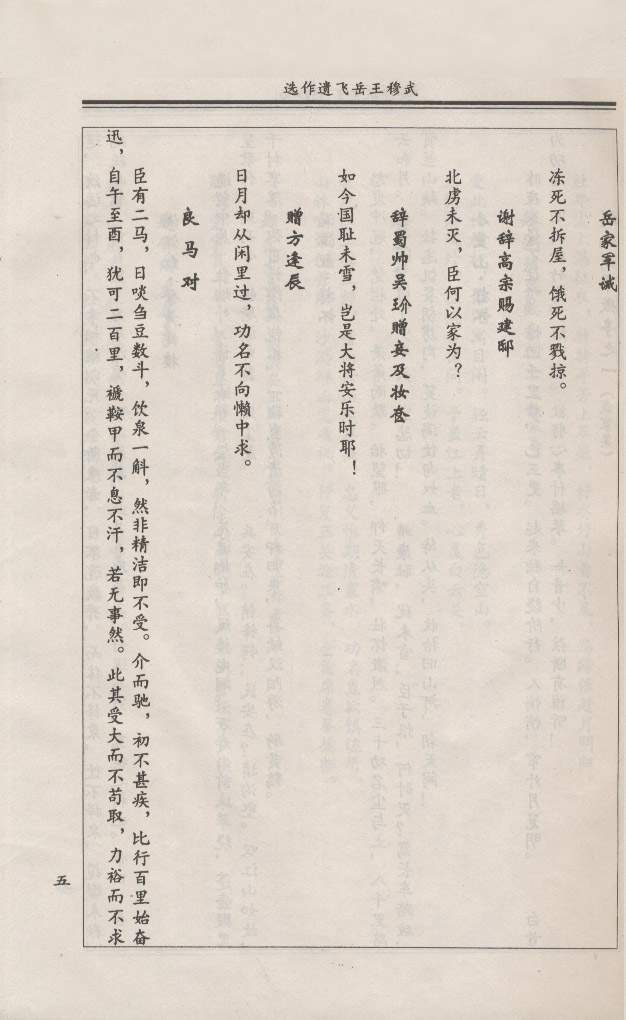 武穆王岳飞遗作选
岳家军诫
冻死不拆屋，饿死不戮掠。
谢辞高宗赐建邸
北虏未灭，臣何以家为？
辞蜀帅吴玠赠妾及妆奁
如今国耻未雪，岂是大将安乐时耶！
赠方逢辰
日月却从闲里过，功名不向懒中求。
良马对
臣有二马，日啖刍豆数斗，饮泉一斛，然非精洁即不受。介而驰，初不甚疾，比行百里始奋
迅，自午至酉，犹可二百里，褫鞍甲而不息不汗，若无事然。此其受大而不苟取，力裕而不求
五